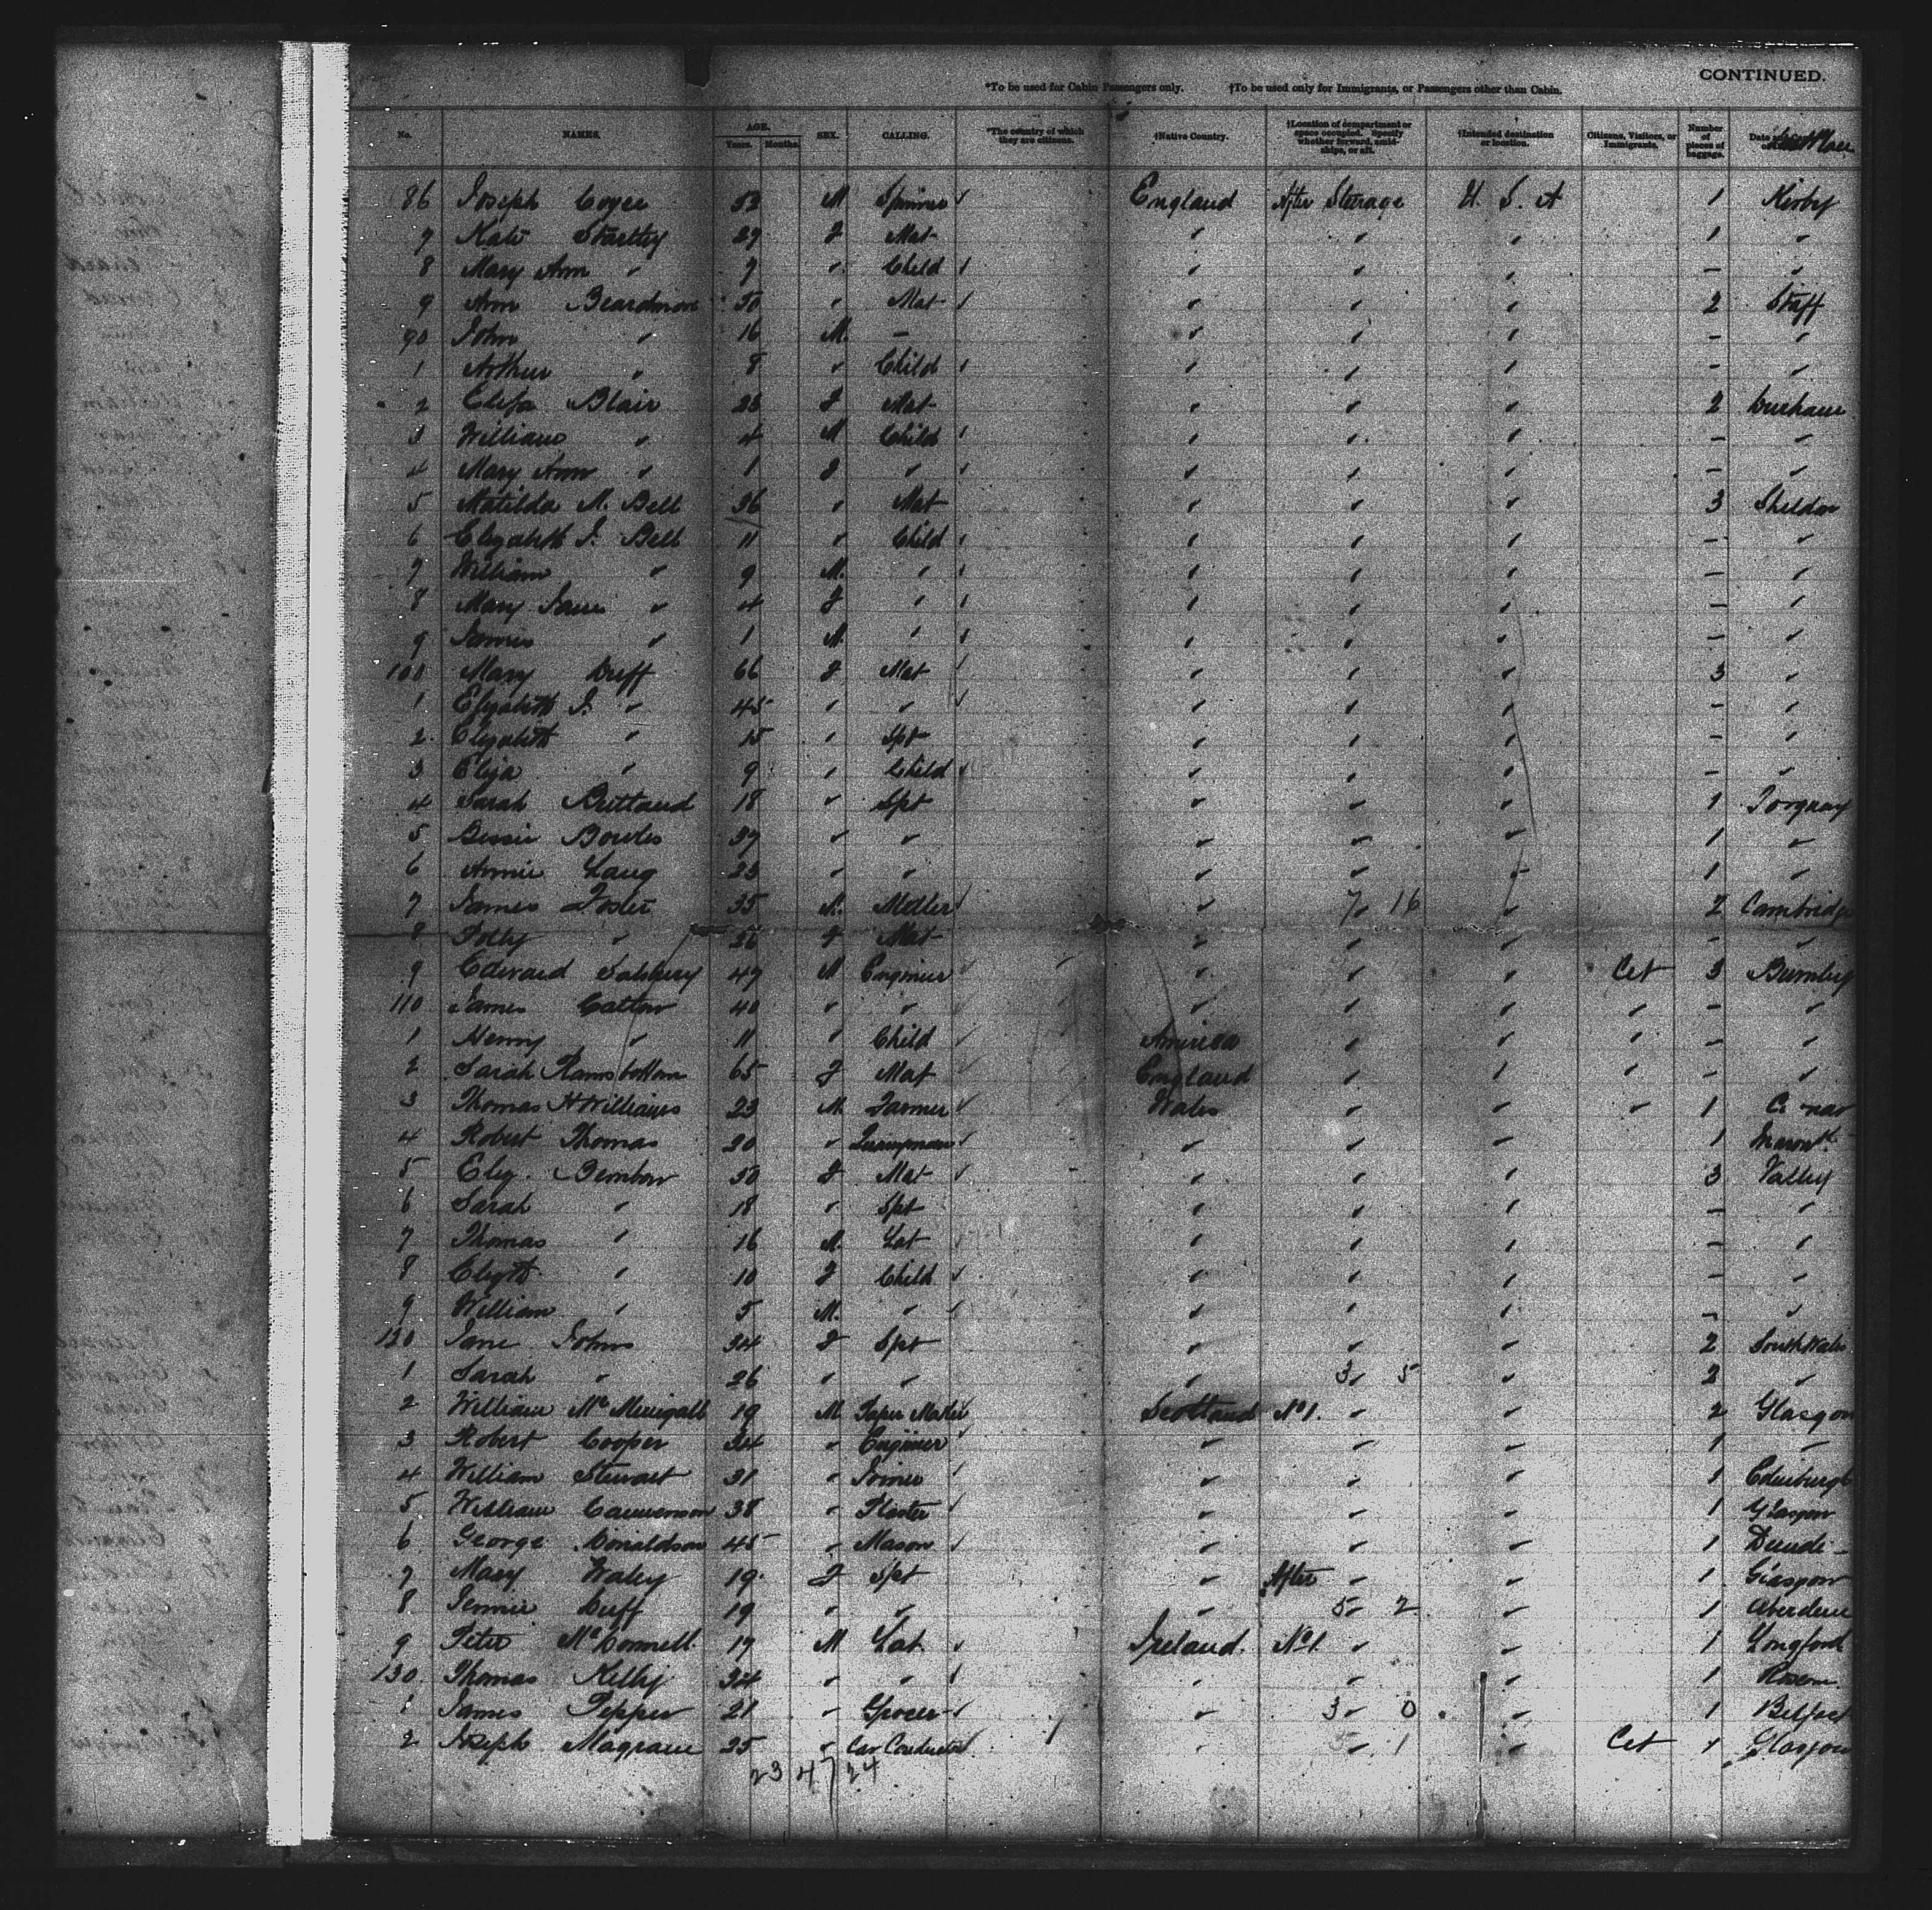 CONTINUED.
*To be used for Cabin Passengers only. †To be used only for Immigrants, or Passengers other than Cabin.
No. NAMES. AGE. Years. Months. SEX. CALLING. *The country of which they are citizens. †Native Country. †Location of compartment or space occupied. Specify whether forward, amidships, or aft. †Intended destination or location. Citizens, Visitors, or Immigrants. Number of pieces of baggage. Date
86 Joseph 53 M Spinner England After Sterage U. S. A 1 Kirby
7 Kate 29 F Mat " " " 1 "
8 Mary Ann " 7 " Child " " " - "
9 Ann Beardmore 50 " Mat " " " 2 Staff
90 John " 16 M. - " " " - "
1 Arthur " 8 " Child " " " - "
2 Eliza Blair 25 F Mat " " " 2 Durham
3 William " 4 M Child " " " - "
4 Mary Ann " 1 F " " " " - "
5 Matilda M. Bell 36 " Mat " " " 3 Sheldon
6 Elizabeth J. Bell 11 " Child " " " - "
7 William " 9 M. " " " " - "
8 Mary Jane " 4 F " " " " - "
9 James " 1 M. " " " " - "
100 Mary Duff 66 F Mat " " " 3 "
1 Elizabeth J. " 45 " " " " " - "
2 Elizabeth " 15 " Spt " " " - "
3 Eliza " 9 " Child " " " - "
4 Sarah 18 " Spt " " " 1 Torquay
5 Bessie Bowles " " " " " 1 "
6 Annie Lang 23 " " " " " 1 "
7 James Foster 35 M. " 7 16 " 2 Cambridge
8 Polly " F Mat " " " - "
9 Edward Salsbury 47 M Engineer " " " Cit 3 Burnley
110 James Catlow 40 " " " " " " - "
1 Henry " 11 " Child America " " " - "
2 Sarah Ramsbottom 65 F Mat England " " " - "
3 Thomas H Williams 23 M Farmer Wales " " " 1
4 Robert Thomas 20 " " " " 1
5 Eliz. Bembow 50 F Mat " " " 3 Valley
6 Sarah " 18 " Spt " " " - "
7 Thomas " 16 M. Lab " " " - "
8 Elizth " 10 F Child " " " - "
9 William " 5 M. " " " " - "
120 Jane Johns 34 F Spt " " " 2 South Wales
1 Sarah " 26 " " " 3 5 " 2 "
2 William 19 M Paper Maker Scotland No1. " " 2 Glasgow
3 Robert Cooper 34 " Engineer " " " 1 "
4 William Stewart 31 " Joiner " " " 1 Edinburgh
5 William Cammeron 38 " " " " 1 Glasgow
6 George Donaldson 45 " Mason " " " 1 Dunde
7 Mary 19 F Spt " After " " 1 Glasgow
8 Jennie Duff 19 " " " 5 2 " 1 Aberdeen
9 Peter McDonnell 17 M Lab Ireland. No1. " " 1 Longford
130. Thomas Kelly 34 " " " " " 1
1 James Pepper 21 " Grocer " 3 0 " 1 Belfast
2 Joseph Magrane 25 " Car Conductor " 5 1 " Cit 1 Glasgow
23 47 24